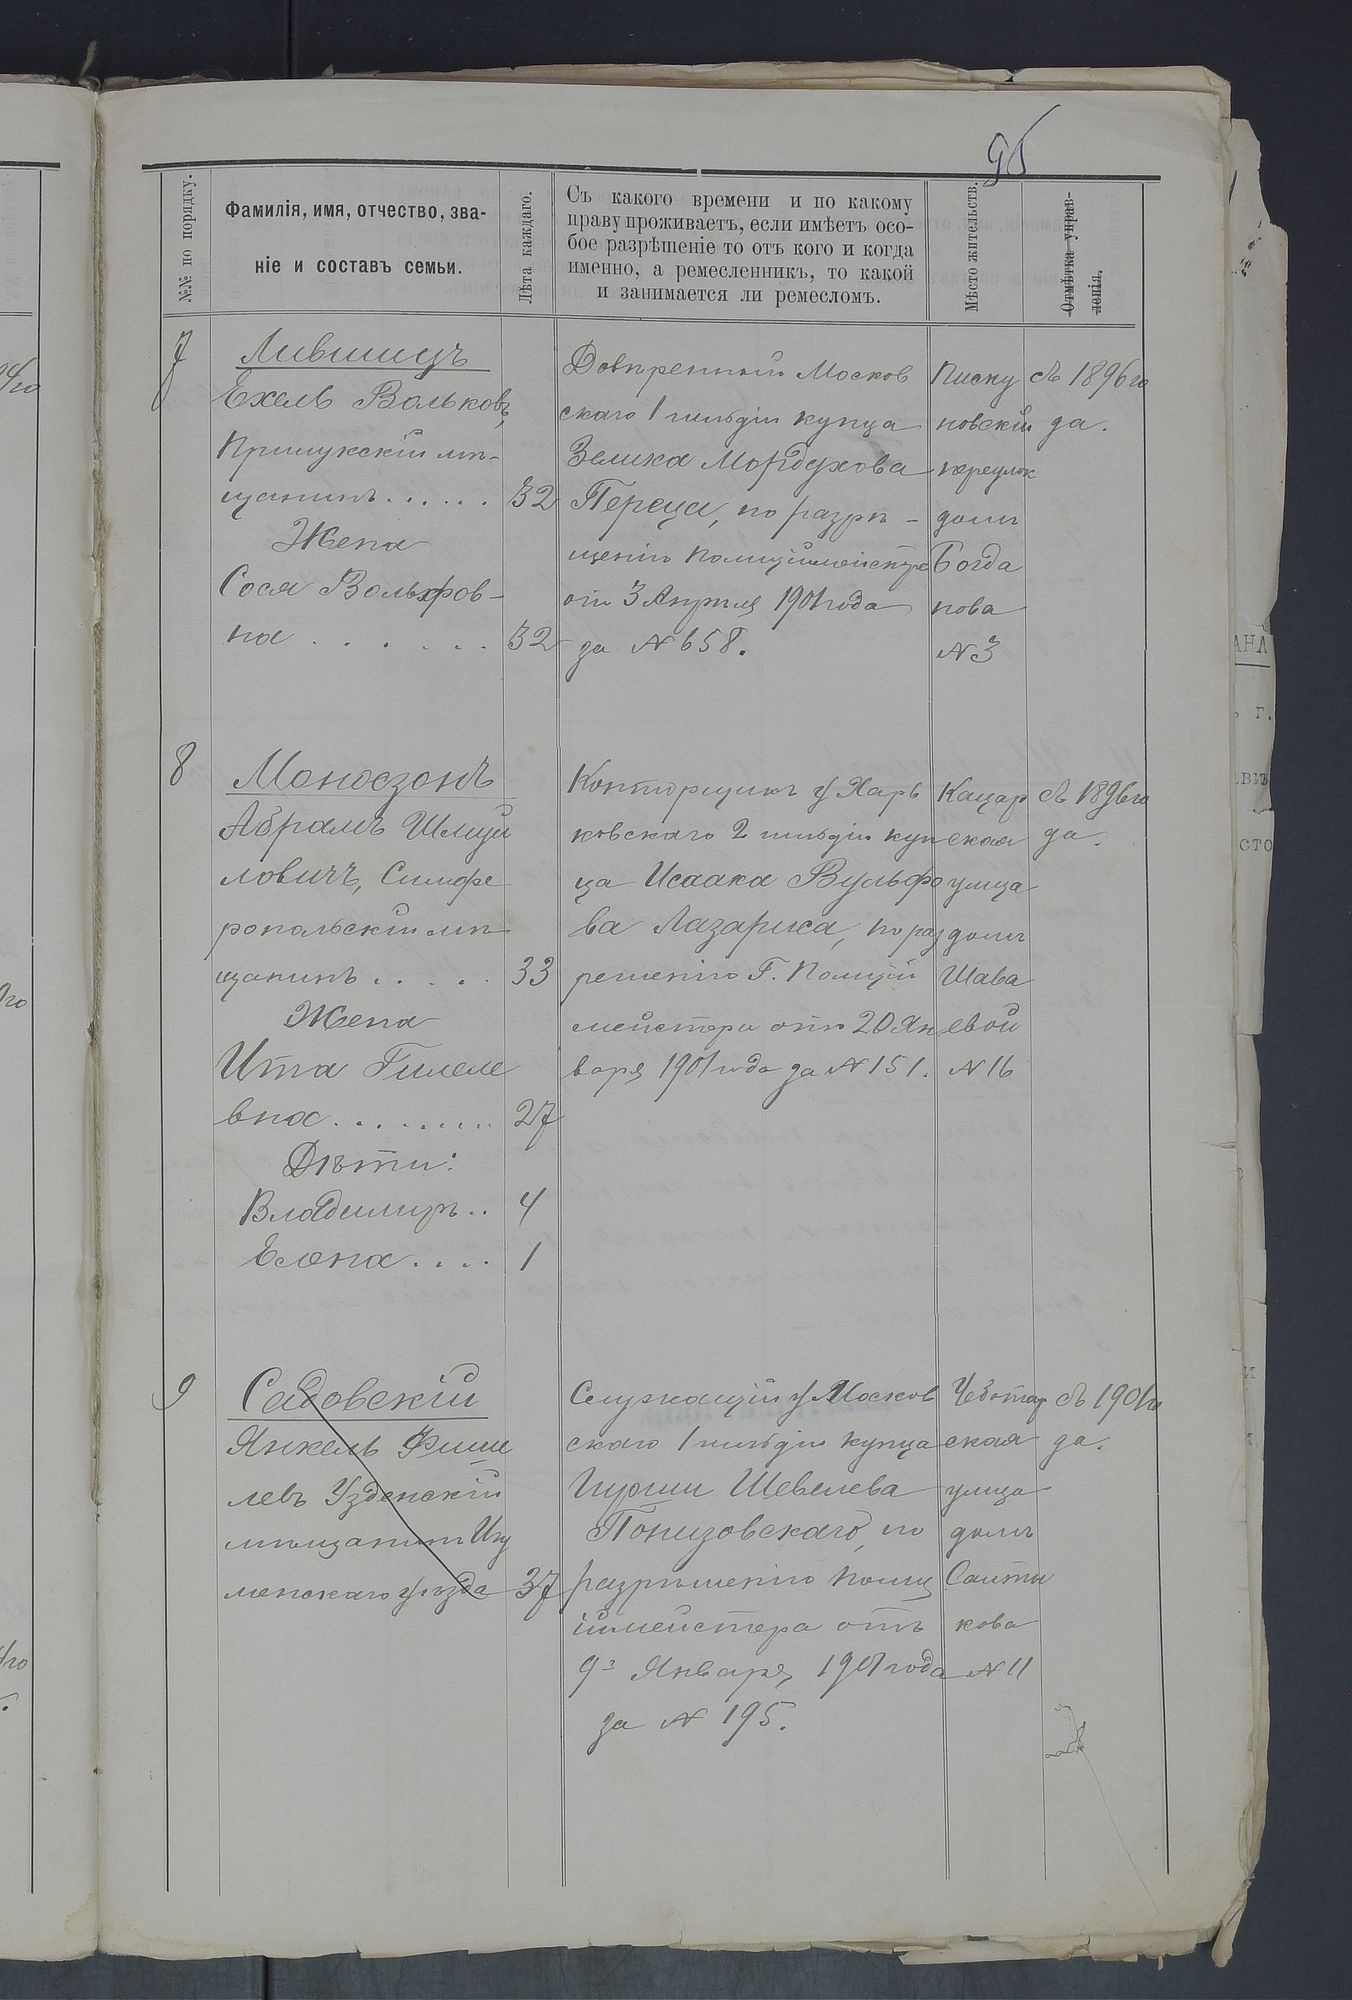 95
№№ по порядку.
Фамилія, имя, отчество, зва-
ніе и составъ семьи.
Лѣта каждаго.
Съ какого времени и по какому
праву проживаетъ, если имѣетъ осо-
бое разрѣшеніе то отъ кого и когда
именно, а ремесленникъ, то какой
и занимается ли ремесломъ.
Мѣсто жительств.
Отмѣтка управ-
ленія.
7
Лившицъ
Ехель Вольковъ,
Прилукскій мѣ-
щанинъ . . . . . . 32
Жена
Сося Вольфов-
на . . . . . . 32
Довѣренный Москов
скаго 1 гильдіи купца
Зелика Мордухова
Переца, по разрѣ-
шенію Полиціймейстера
отъ 3 Апрѣля 1901 года
за № 658.
Писку
новскій
переулок
домъ
Богда
нова
№ 3
съ 1896 го
да.
8
Моносзонъ
Абрамъ Шмуй
ловичъ, Симфе
ропольскій мѣ
щанинъ . . . . . 33
Жена
Ита Гилеле
вна . . . . . . . . 27
Дѣти:
Владимиръ . . 4
Елена . . . . 1
Конторщикъ у Харь
ковскаго 2 гильдіи куп
ца Исаака Вульфо
ва Лазариса, по раз
решенію Г. Полицій
мейстера отъ 20 Ян
варя 1901 года за № 151.
Кацар
ская
улица
домъ
Шава
евой
№ 16
съ 1896 го
да.
9
Садовскій
Янкель Фише
левъ Узденскій
мѣщанинъ Игу
менскаго уѣзда 37
Служащій у Москов
скаго 1 гильдіи купца
Гирши Шевелева
Понизовскаго, по
разрѣшенію Полиц
іймейстера отъ
9го Января 1901 года
за № 195.
Чеботар
ская
улица
домъ
Салты
кова
№ 11
съ 1901 го
да.